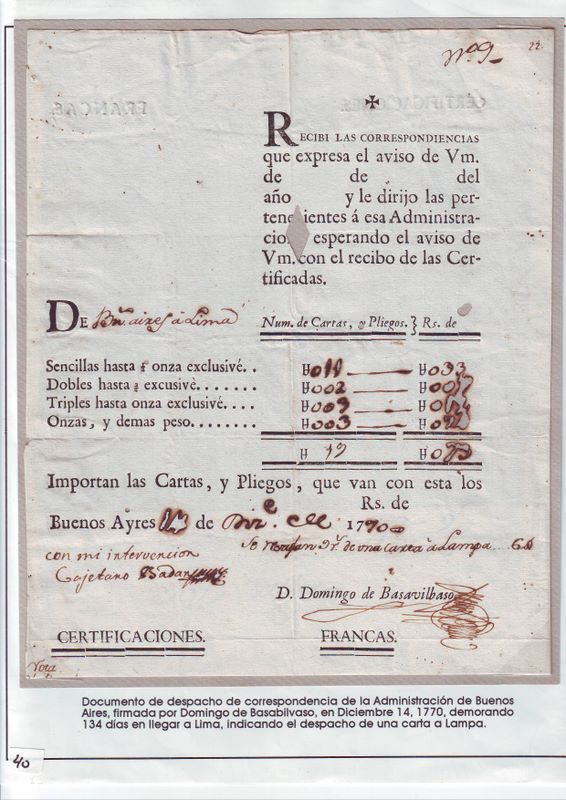 Nº 9
22
✠
RECIBI LAS CORRESPONDIENCIAS
que expresa el aviso de Vm.
de de del
año y le dirijo las per-
tenecientes á esa Administra-
cion esperando el aviso de
Vm. con el recibo de las Cer-
tificadas.
DE Bs. aires à Lima
Num. de Cartas, y Pliegos. } Rs. de
Sencillas hasta onza exclusivé. . H011 H033
Dobles hasta excusivè. . . . . . . H002
Triples hasta onza exclusivé. . . . H003
Onzas, y demas peso. . . . . . . . H003
H 19
Importan las Cartas, y Pliegos, que van con esta los
Rs. de
Buenos Ayres de 1770
con mi intervencion
de una carta à Lampa
Cajetano
D. Domingo de Basavilbaso
CERTIFICACIONES. FRANCAS.
Documento de despacho de correspondencia de la Administración de Buenos
Aires, firmada por Domingo de Basabilvaso, en Diciembre 14, 1770, demorando
134 días en llegar a Lima, indicando el despacho de una carta a Lampa.
40